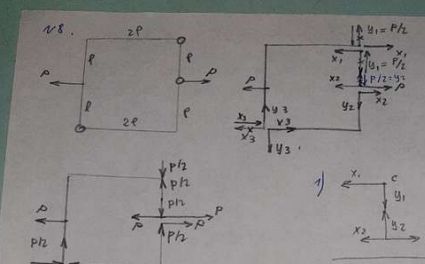 N8.
2ℓ
ℓ
ℓ
P
P
ℓ
ℓ
2ℓ
y₁ = P/2
x₁
x₁
y₁ = P/2
x₂
P/2 = y₂
P
x₂
y₂
P
y₃
x₃
x₃
x₃
y₃
P/2
P/2
P/2
P
P
P
P/2
P/2
P/2
1)
x₁
c
y₁
y₂
x₂